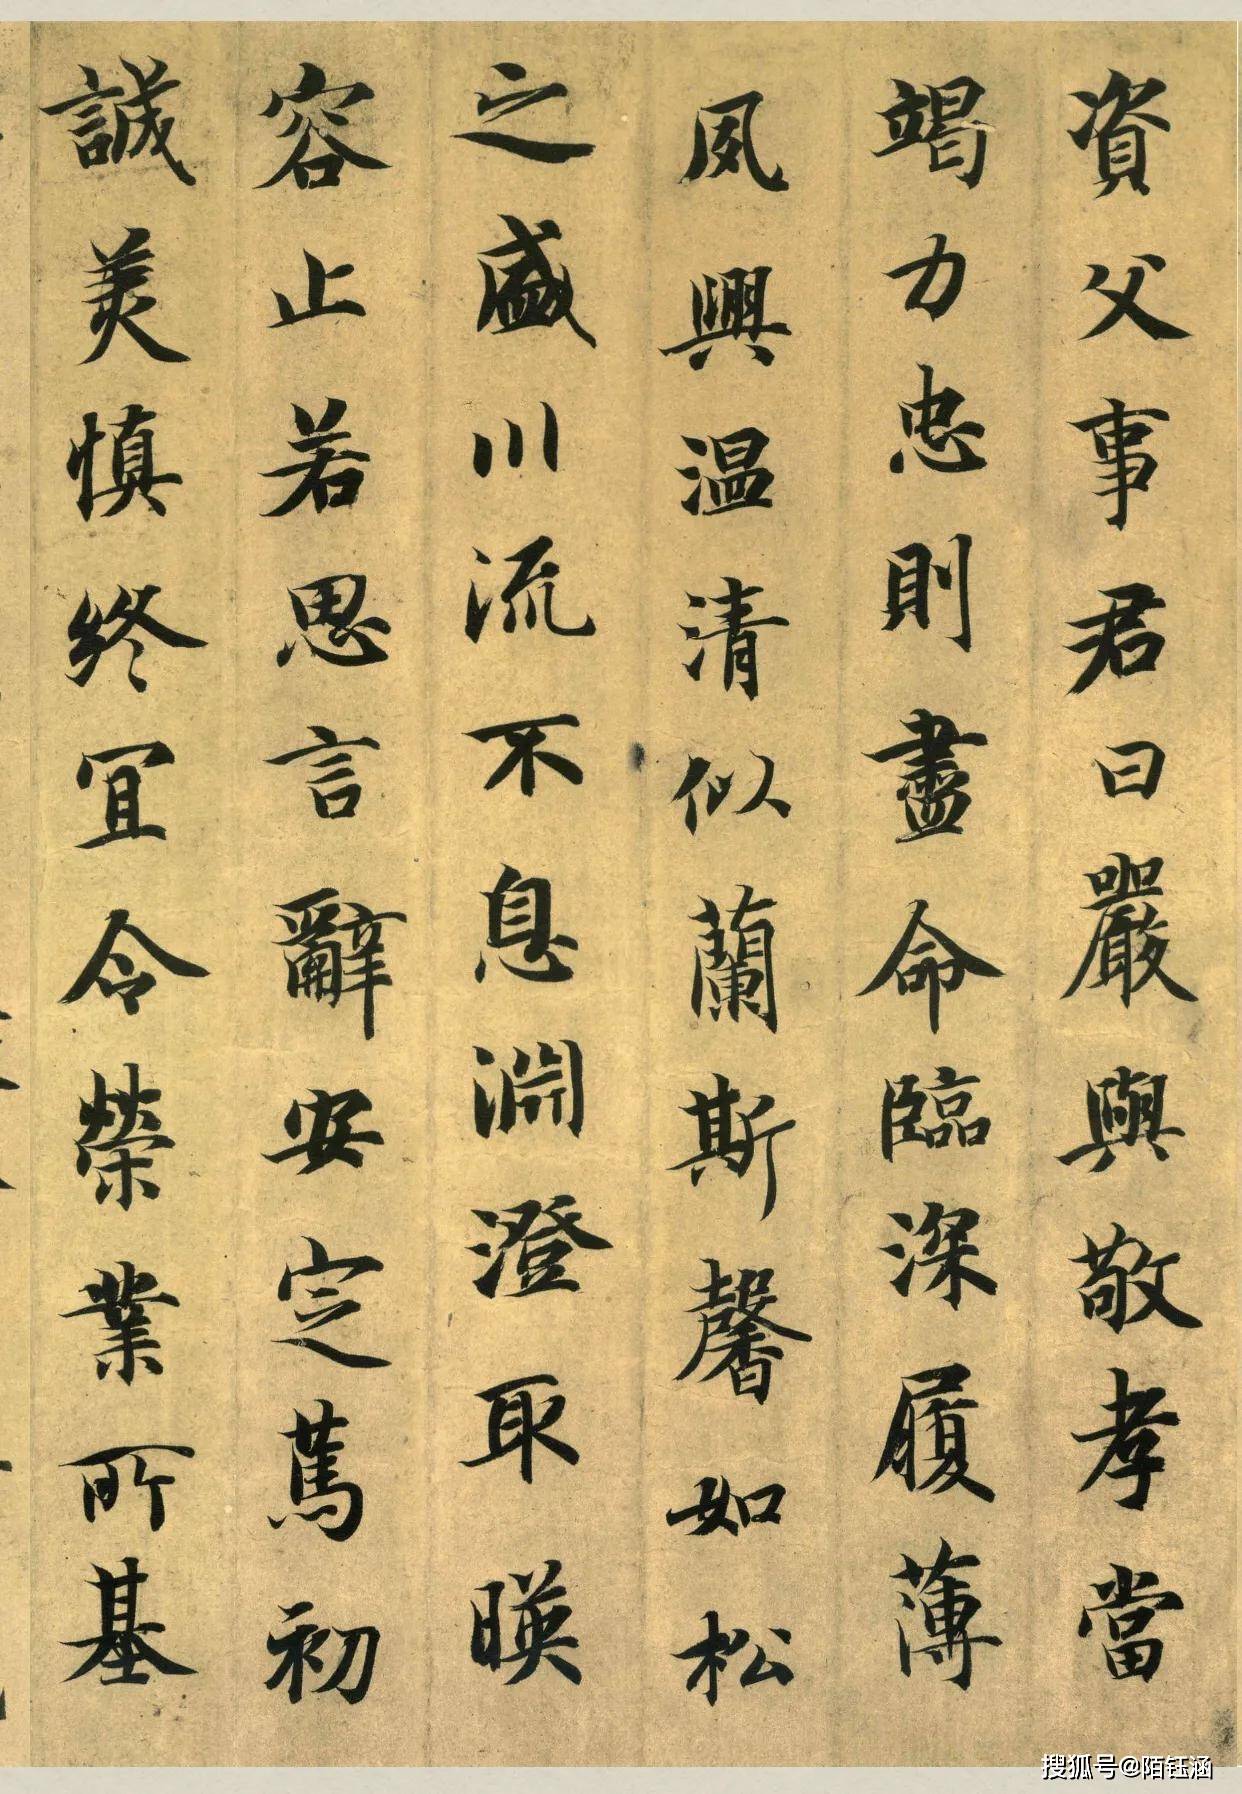 資父事君曰嚴與敬孝當
竭力忠則盡命臨深履薄
夙興温清似蘭斯馨如松
之盛川流不息淵澄取暎
容止若思言辭安定篤初
誠美慎終宜令榮業所基
搜狐号@陌钰涵